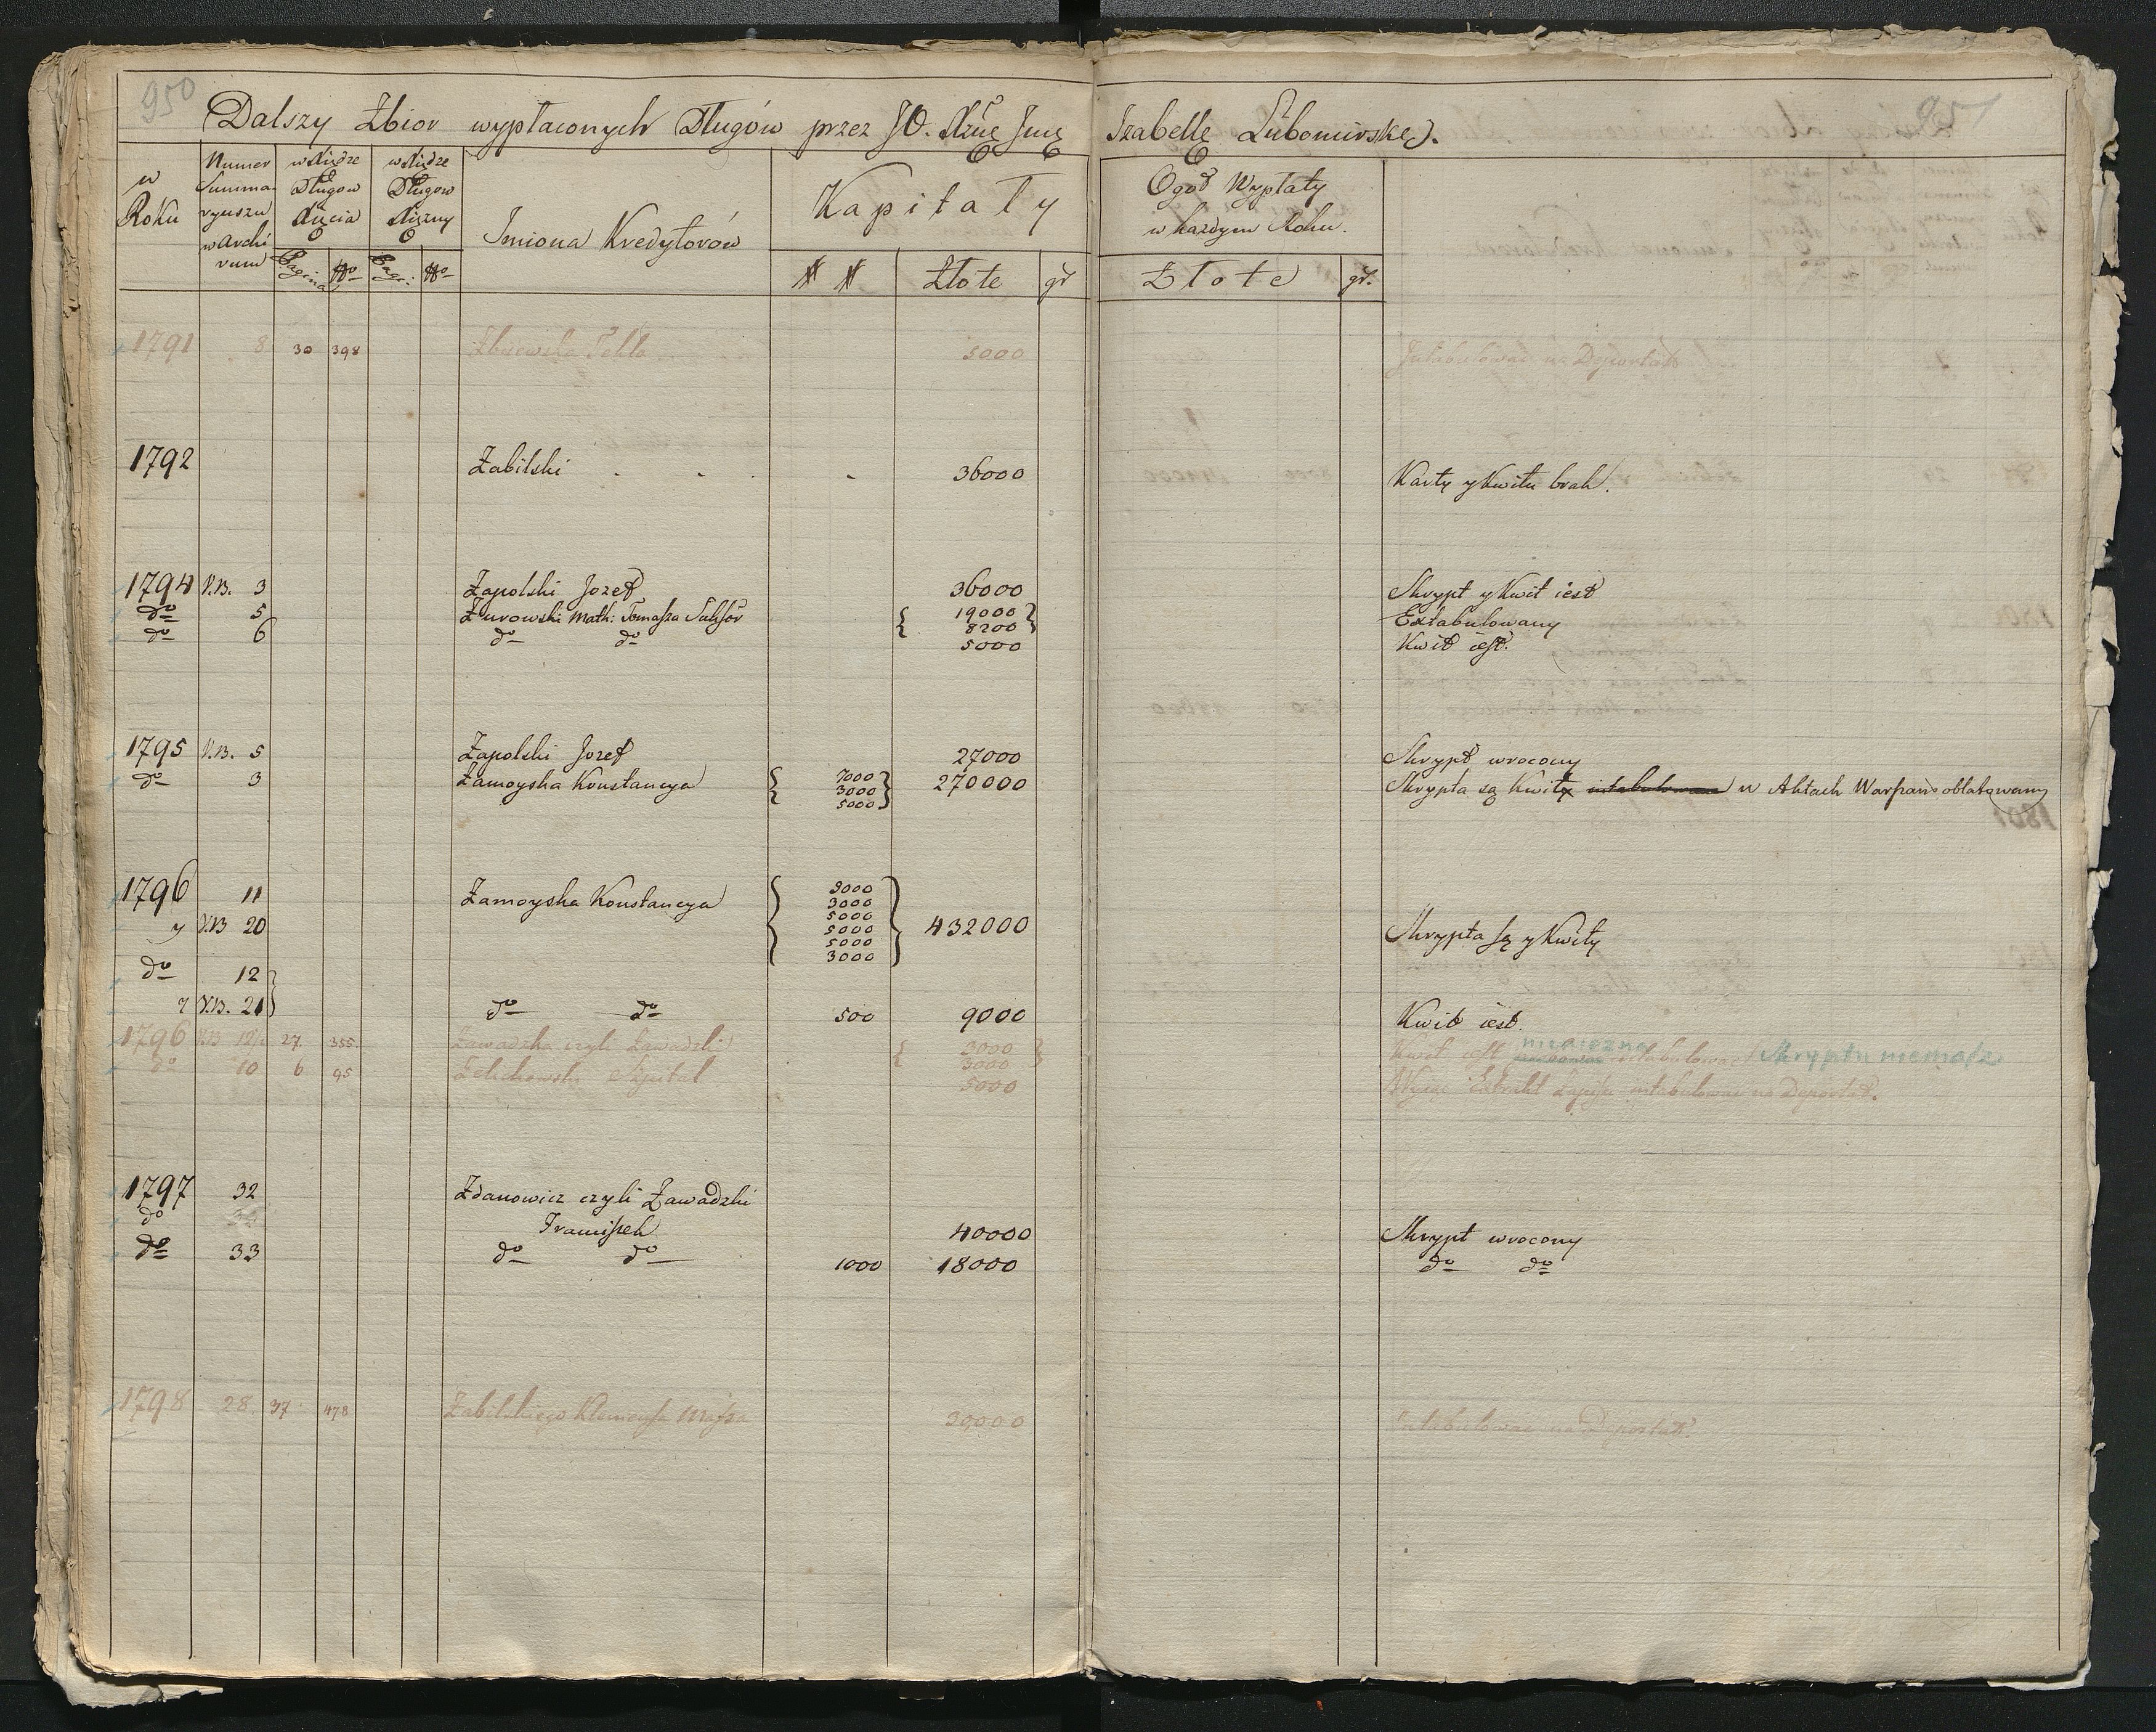 950
951
Dalszy Zbior wypłaconych Długów przez JO. Xżnę Jmę Izabellę Lubomirskę.
w Roku
Numer Summa- ryuszu w Archi vum
w Xiędze Długow Xięcia
w Xiędze Długow Xiężny
Pagina No Pagi: No
Imiona Kredytorów
Kapitały
# # Złote gr
Ogoł Wypłaty w każdym Roku.
Złote gr.
1791 8 30 398 Tekla 5000 Intabulować na Deportat
1792 Zabilski . . . 36000 Karty y Kwitu brak.
1794 N.B. 3 Zapolski Jozef 36000 Skrypt y Kwit iest
do 5 Żurowski Math: Tomasza Sukssor { 19000 8200 } Extabulowany
do 6 do do 5000 Kwit iest.
1795 N.B. 5 Zapolski Jozef 27000 Skrypt wrocony
do 3 Zamoyska Konstancya { 7000 3000 5000 } 270000 Skrypta są Kwity intabulowane w Aktach Warszaw: oblatowany
1796 11 Zamoyska Konstancya { 9000 3000 5000 5000 5000 3000 } 432000 Skrypta są y Kwity
y NB 20
do 12
y N.B. 21 do do 500 9000 Kwit iest.
1796 NB 27. 355. Zawadzka czyli Zawadzki { 3000 3000 } Kwit iest intabulować Skryptu niemasz
do 10 6 95 Zelichowski Szpital 5000 Extrakt Zapisu intabulować na Deportat.
1797 32 Zdanowicz czyli Zawadzki
do Franciszek 40000 Skrypt wrocony
do 33 do do 1000 18000 do do
1798 28. 37. 478 Zabilskiego Klemensa Massa 30000 Intabulować na Deportat.